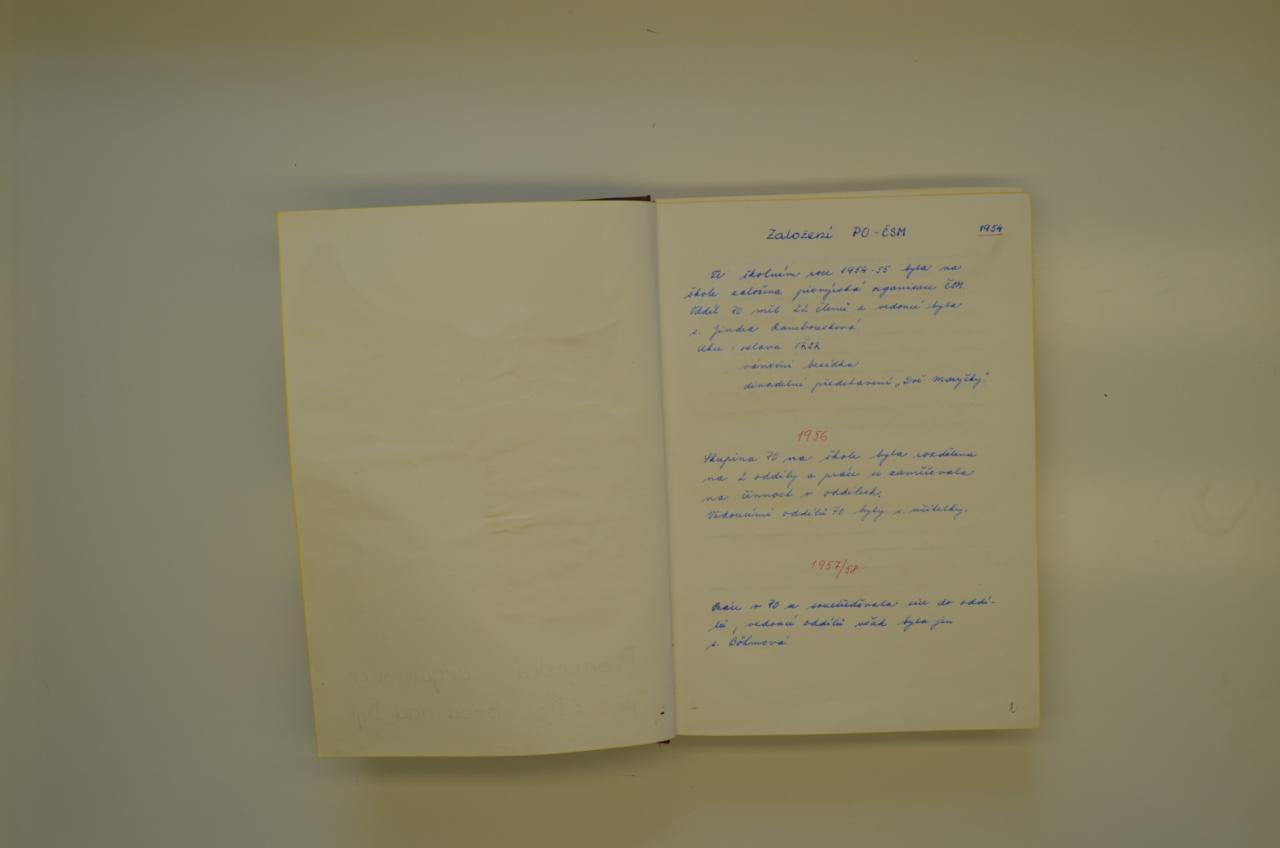 Založení PO-ČSM 1954
Ve školním roce 1954-55 byla na
škole založena pionýrská organisace ČSM
Oddíl PO měl 22 členů a vedoucí byla
s. Jindra Rambousková
Akce: oslava VŘSR
vánoční besídka
divadelní představení „Dvě Maryčky"
1956
Skupina PO na škole byla rozdělena
na 2 oddíly a práce se zaměřovala
na činnost v oddílech.
Vedoucími oddílů PO byly s. učitelky.
1957/58
Práce v PO se soustřeďovala více do oddí-
lů, vedoucí oddílů však byla jen
s. Böhmová